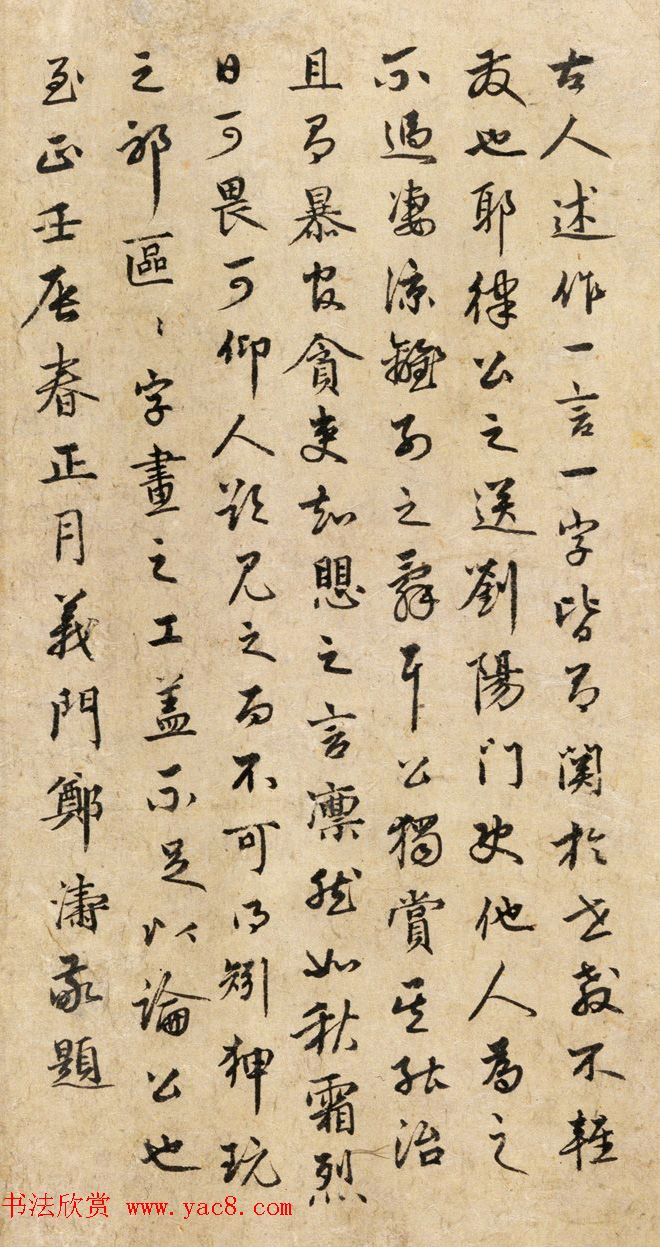 古人述作一言一字皆有関於世教不輕
发也耶律公之送劉陽门使他人為之
不過凄凉離別之辞耳公獨賞其能治
且有暴官貪吏知愳之言凛然如秋霜烈
日可畏可仰人欲見之而不可得矧狎玩
之邪區〻字畫之工盖不足以論公也
至正壬辰春正月義門鄭濤敬題
书法欣赏 www.yac8.com